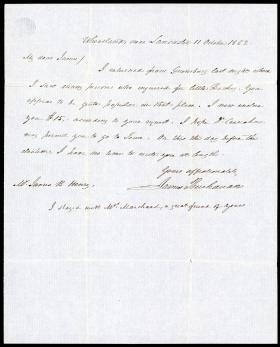 Wheatland, near Lancaster 11 October 1852
My dear James/
I returned from Greensburg last night where
I saw many persons who enquired for little Buchy. You
appear to be quite popular in that place. I now enclose
you $15. according to your request. I hope Dr
was permit you to go to Town. On this the day before the
election I have no time to write you at length
Yours affectionately
James Buchanan
Mr. James B. Henry.
I stayed with Mr. Marchand, a great friend of yours